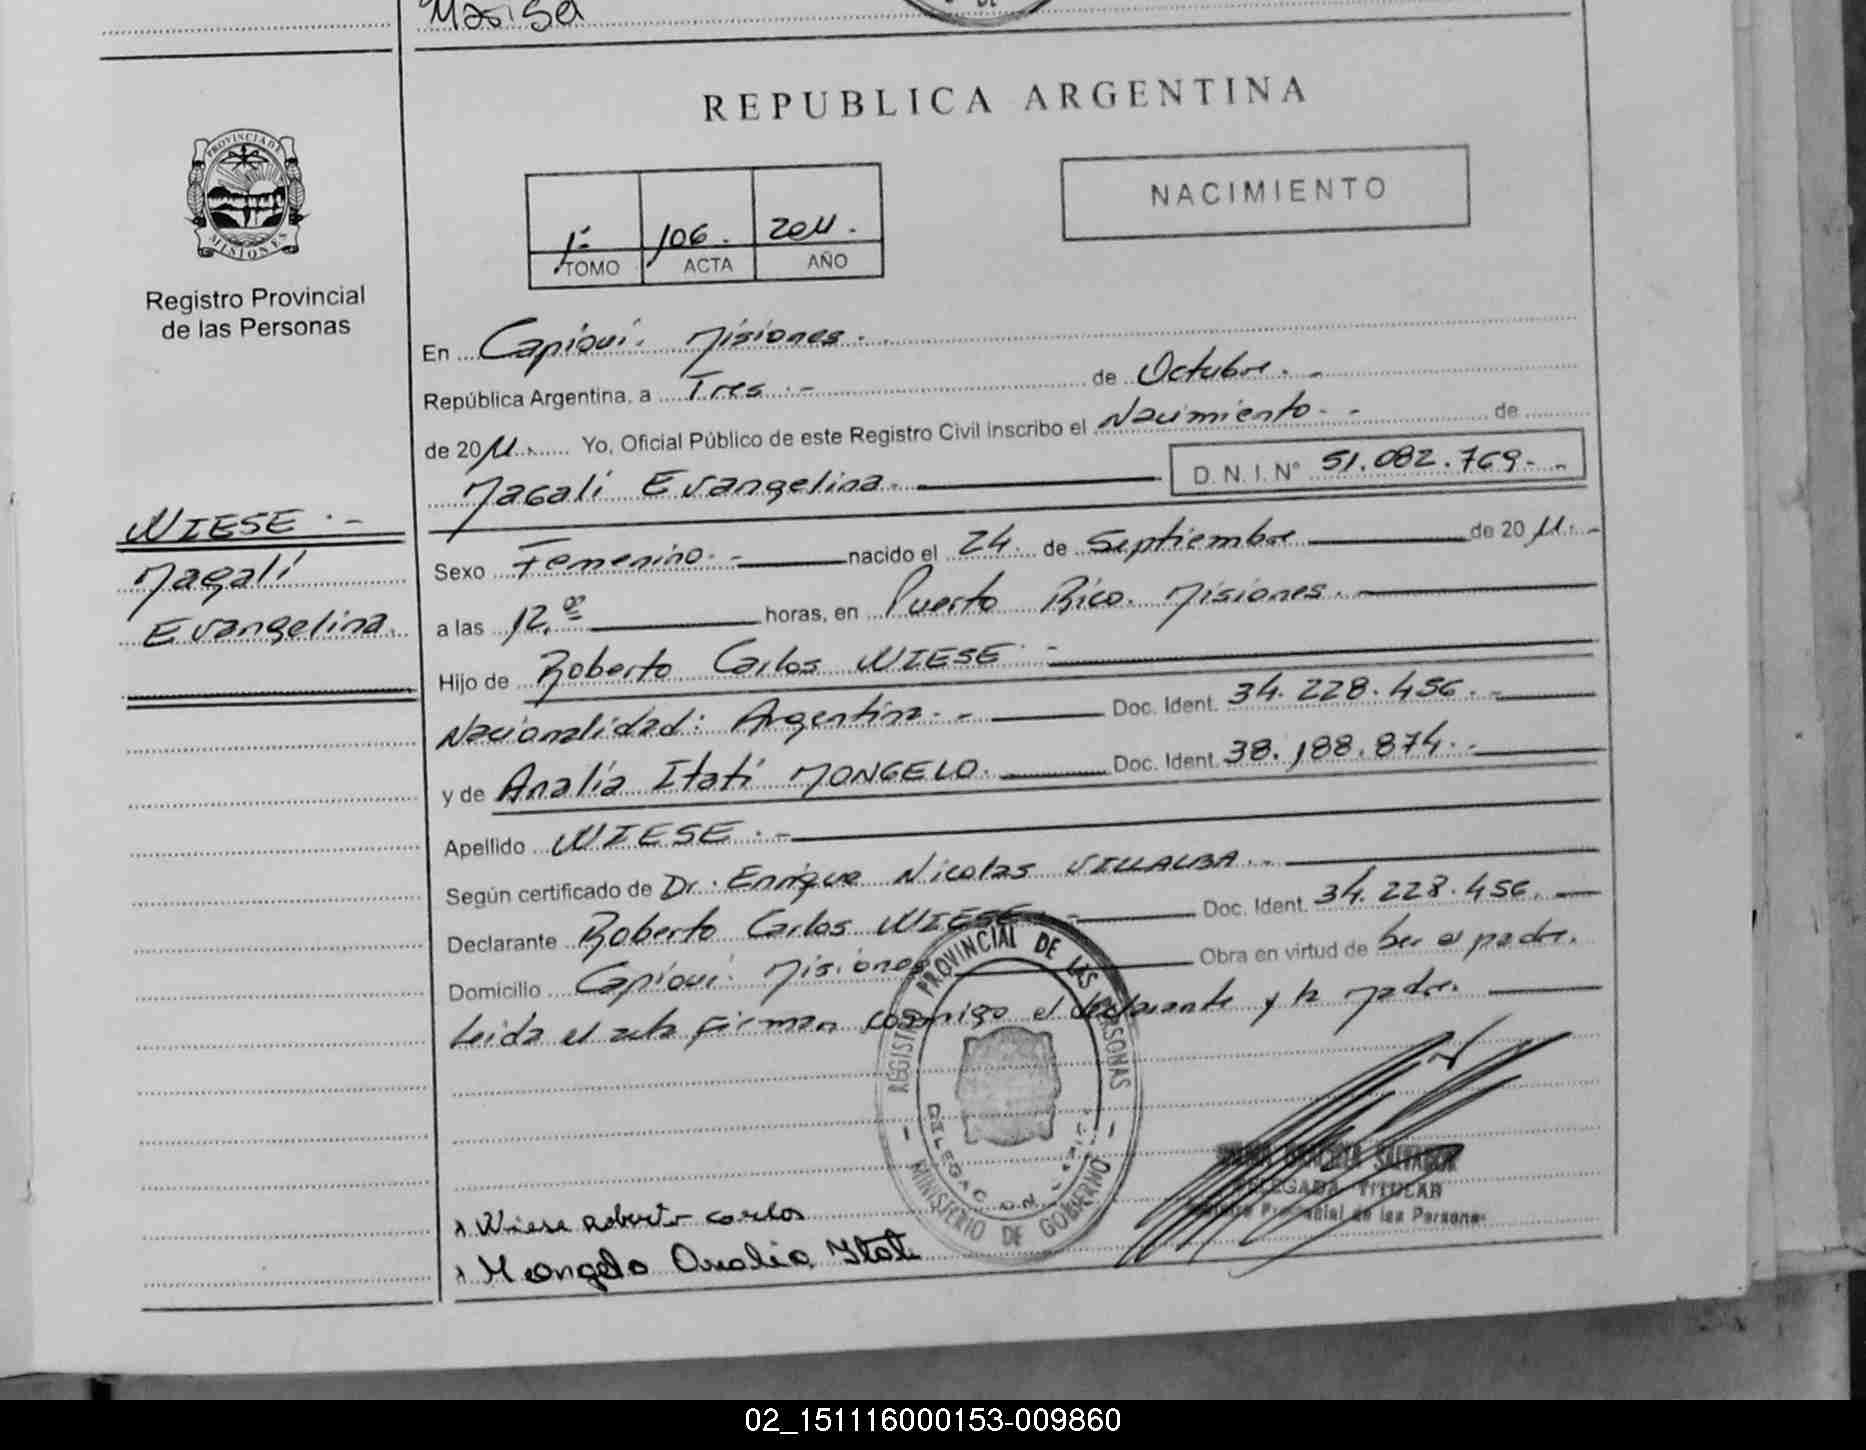 Marisa
REPUBLICA ARGENTINA
PROVINCIA DE
MISIONES
Registro Provincial
de las Personas
1º 106. 2011.
TOMO ACTA AÑO
NACIMIENTO
En Capioví. Misiones.
República Argentina, a Tres.- de Octubre.-
de 2011. Yo, Oficial Público de este Registro Civil inscribo el Nacimiento.- de
Magali Evangelina. D. N. I. Nº 51.082.769.-
WIESE.-
Magali
Evangelina.
Sexo Femenino.- nacido el 24. de Septiembre de 2011.-
a las 12,00 horas, en Puerto Rico. Misiones.
Hijo de Roberto Carlos WIESE.-
Nacionalidad: Argentina.- Doc. Ident. 34.228.456.-
y de Analía Itatí MONGELO. Doc. Ident. 38.188.874.-
Apellido WIESE.-
Según certificado de Dr. Enrique Nicolas VILLALBA.
Declarante Roberto Carlos WIESE.- Doc. Ident. 34.228.456.
Domicilio Capioví. Misiones Obra en virtud de ser el padre.
Leida el acta firman conmigo el declarante y la madre.
REGISTRO PROVINCIAL DE LAS PERSONAS
MINISTERIO DE GOBERNO
SALVADOR
DELEGADA TITULAR
Registro Provincial de las Personas
x Wiese Roberto carlos
x Mongelo Analia Itati
02_151116000153-009860